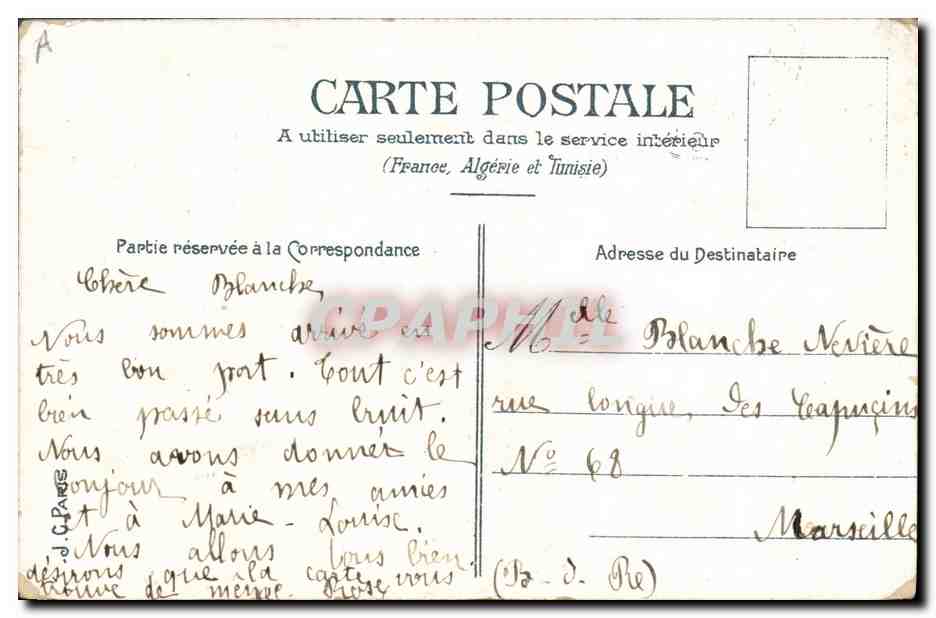 A
CARTE POSTALE
A utiliser seulement dans le service intérieur
(France, Algérie et Tunisie)
Partie réservée à la Correspondance
Adresse du Destinataire
Chère Blanche,
Nous sommes arrivé est
très bon port. Tout c'est
bien passé sans bruit.
Nous avons donner le
bonjour à mes amies
et à Marie-Louise.
Nous allons tous bien
désirons que la carte vous
trouve de même. Rose
Mdlle Blanche Nevière
rue longue, des Capuçins
No 68
Marseille
(B-d-Re)
J.G. PARIS
CPAPHIL